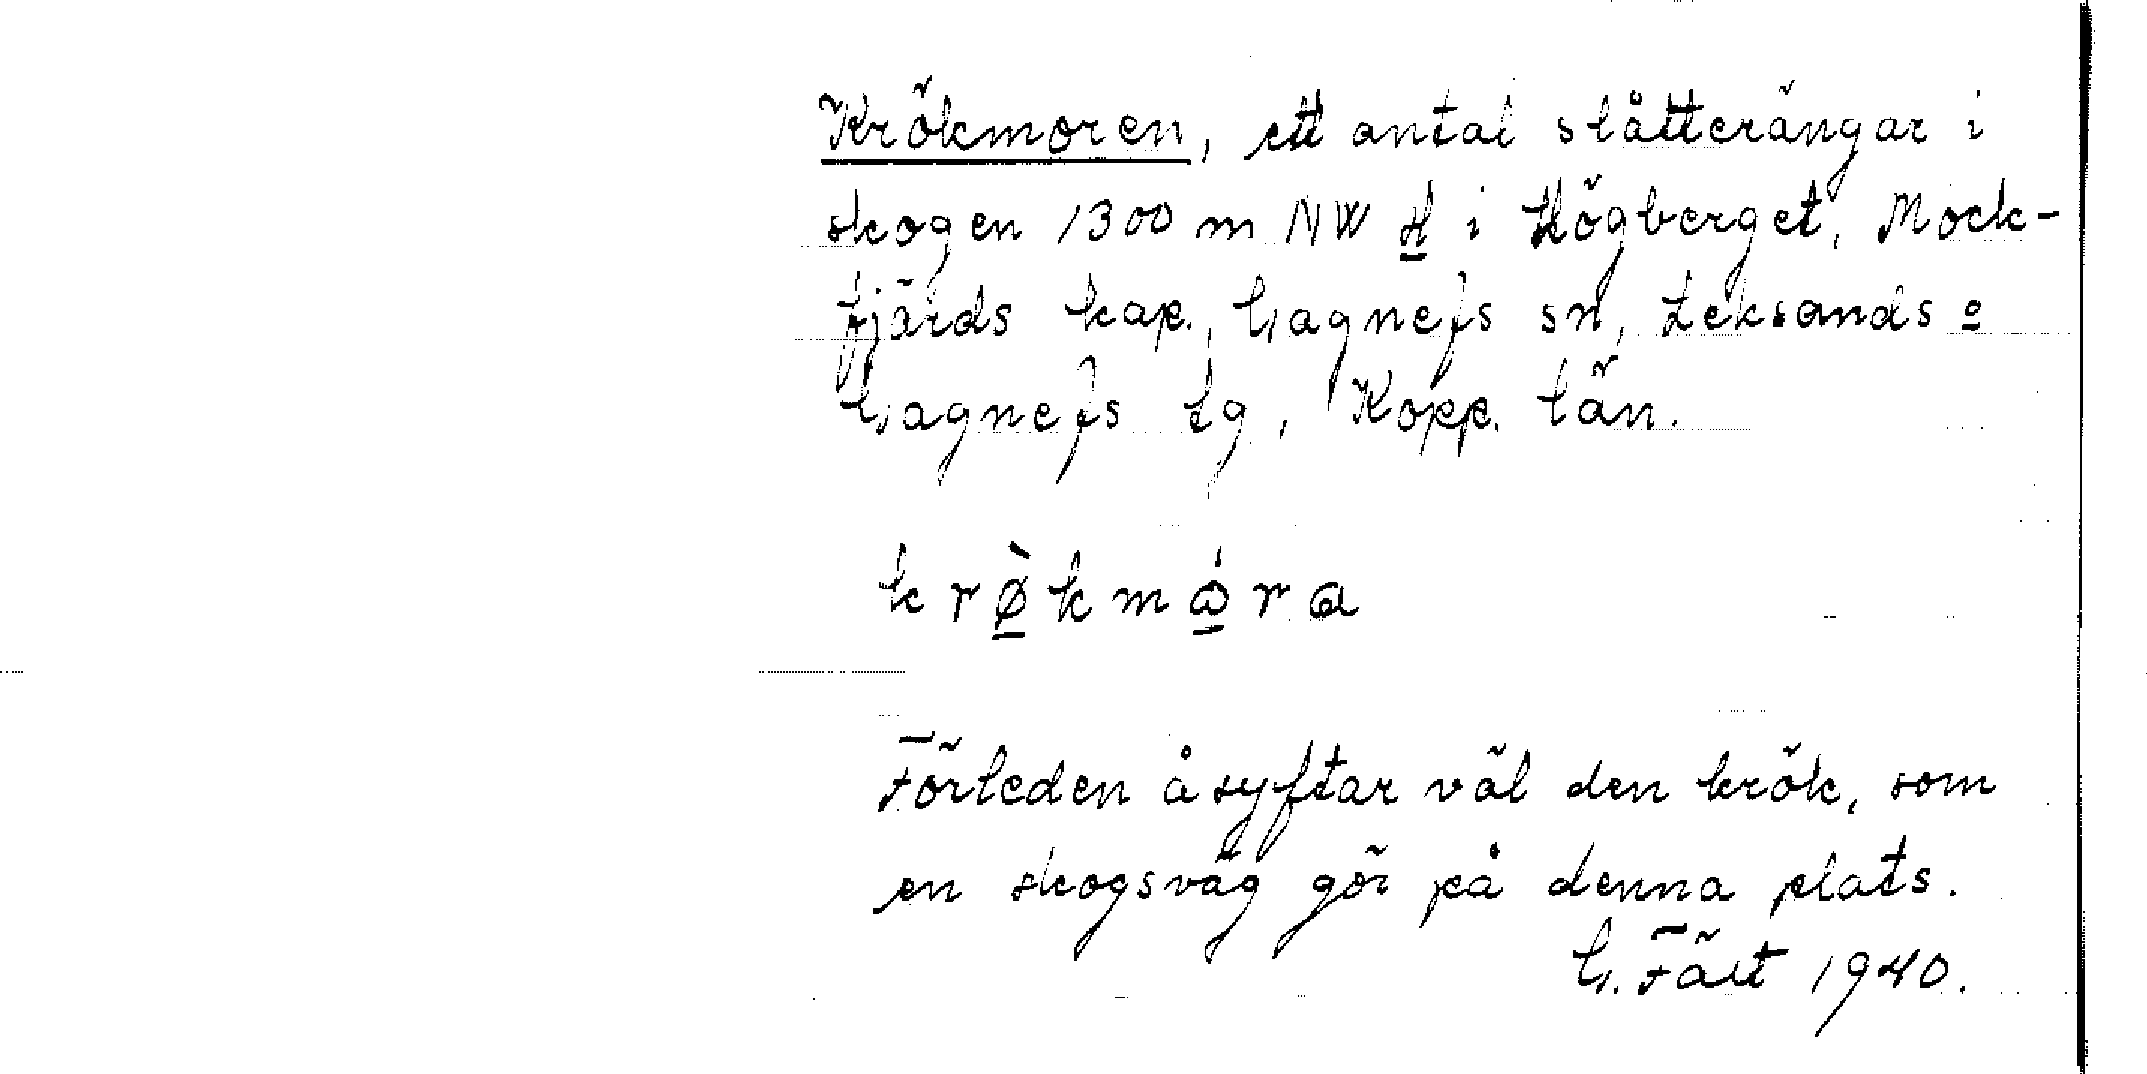 Krökmoren, ett antal slåtterängar i
skogen 1300 m NW H i Högberget, Mock-
fjärds kap., Gagnefs sn, Leksands o
Gagnefs tg, Kopp. län.
krø̀kmω̇ra
Förleden åsyftar väl den krök, som
en skogsväg gör på denna plats.
G. Fält 1940.